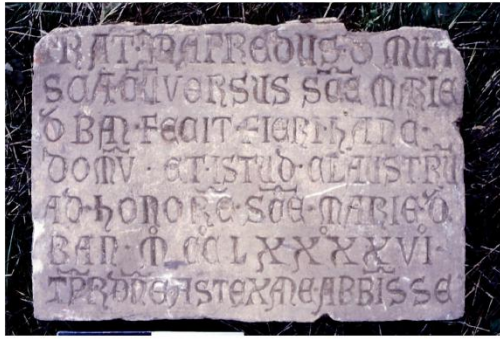 FRAT·MAFREDUS·D̄ MUA
SCĀ·C̄VERSUS SC̄E MARIE
D̄ BAN·FECIT·FIERI·HANC·
DOMŪ·ET·ISTUD·CLAISTRŪ
AD·HONORE·SC̄E·MARIE·D̄
BAN·M̊ C̊C̊LXXXXVI·
TP̄R DN̄E ASTEXANE·ABBĪSSE